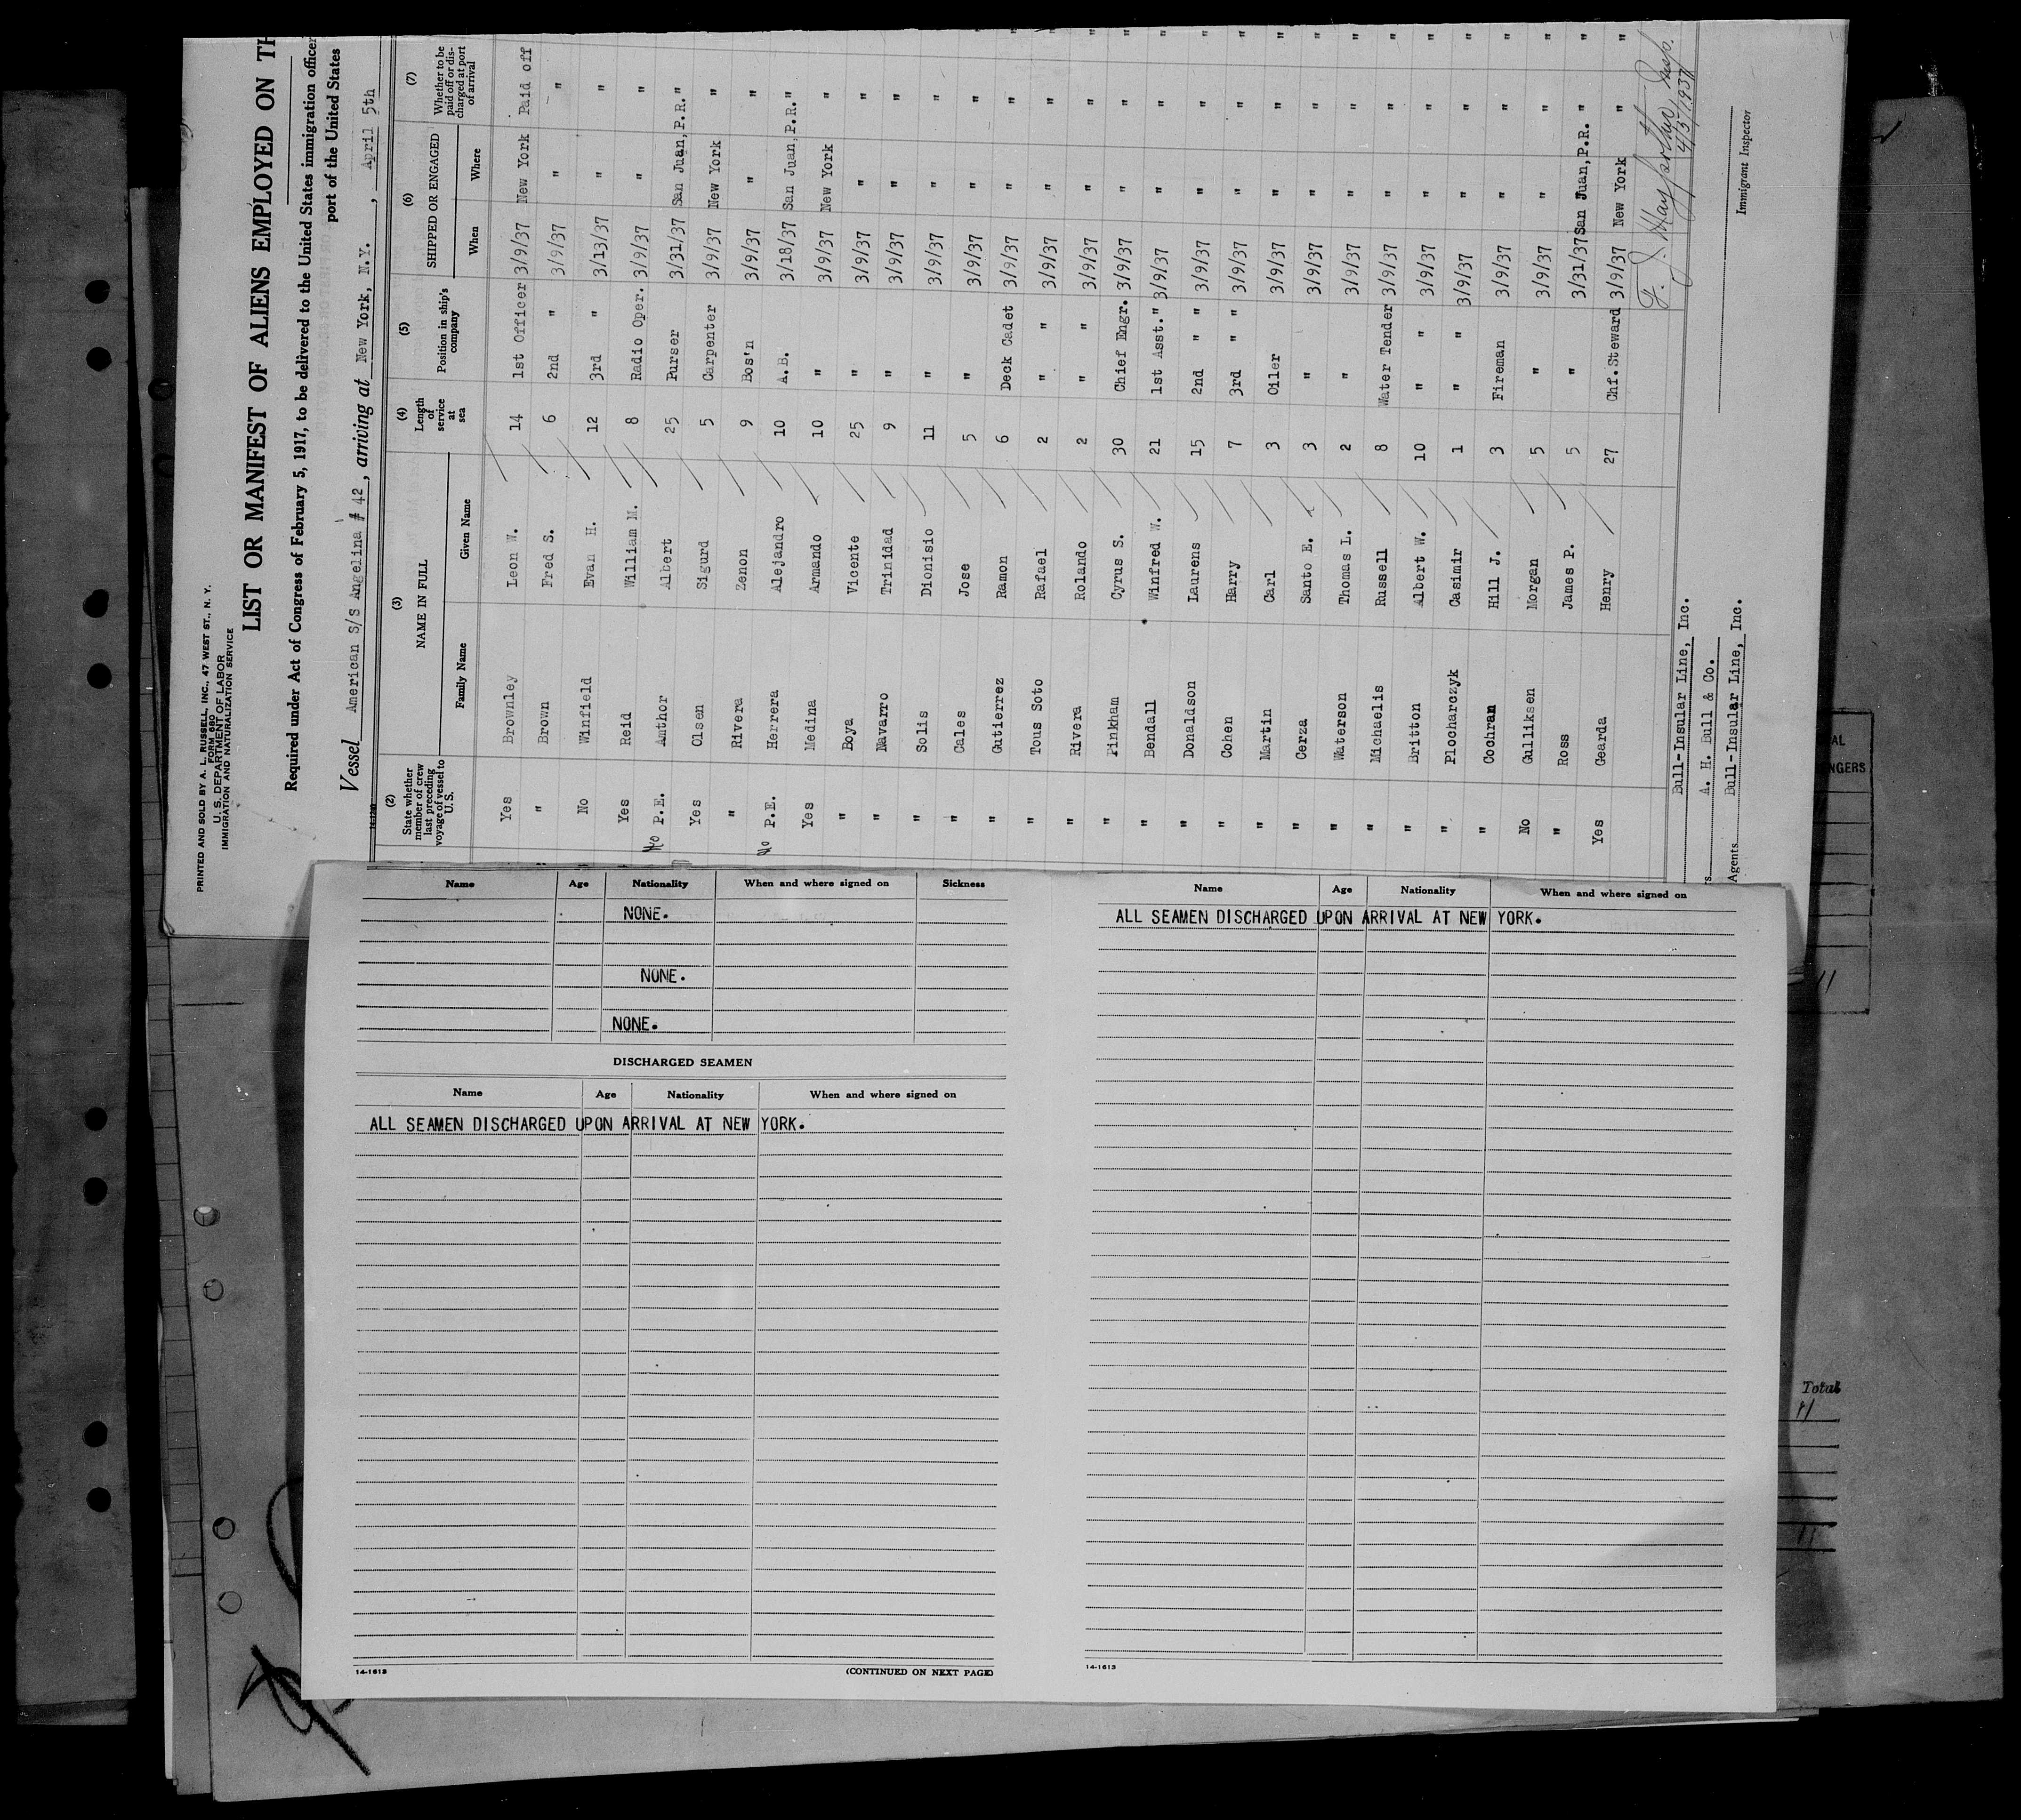 PRINTED AND SOLD BY A. L. RUSSELL, INC., 47 WEST ST., N. Y.
FORM 680
U. S. DEPARTMENT OF LABOR
IMMIGRATION AND NATURALIZATION SERVICE
LIST OR MANIFEST OF ALIENS EMPLOYED ON TH
Required under Act of Congress of February 5, 1917, to be delivered to the United States immigration officer
port of the United States
Vessel American S/S Angelina # 42, arriving at New York, N.Y., April 5th
(2) (3) (4) (5) (6) (7)
State whether member of crew last preceding voyage of vessel to U.S. NAME IN FULL Length of service at sea Position in ship's company SHIPPED OR ENGAGED Whether to be paid off or discharged at port of arrival
Family Name Given Name When Where
Yes Brownley Leon W. 14 1st Officer 3/9/37 New York Paid off
" Brown Fred S. 6 2nd " 3/9/37 " "
No Winfield Evan H. 12 3rd " 3/13/37 " "
Yes Reid William M. 8 Radio Oper. 3/9/37 " "
No P.E. Amthor Albert 25 Purser 3/31/37 San Juan, P.R. "
Yes Olsen Sigurd 5 Carpenter 3/9/37 New York "
" Rivera Zenon 9 Bos'n 3/9/37 " "
No P.E. Herrera Alejandro 10 A.B. 3/18/37 San Juan, P.R. "
Yes Medina Armando 10 " 3/9/37 New York "
" Boya Vicente 25 " 3/9/37 " "
" Navarro Trinidad 9 " 3/9/37 " "
" Solis Dionisio 11 " 3/9/37 " "
" Cales Jose 5 " 3/9/37 " "
" Gutierrez Ramon 6 Deck Cadet 3/9/37 " "
" Tous Soto Rafael 2 " " 3/9/37 " "
" Rivera Rolando 2 " " 3/9/37 " "
" Pinkham Cyrus S. 30 Chief Engr. 3/9/37 " "
" Bendall Winfred W. 21 1st Asst. " 3/9/37 " "
" Donaldson Laurens 15 2nd " " 3/9/37 " "
" Cohen Harry 7 3rd " " 3/9/37 " "
" Martin Carl 3 Oiler 3/9/37 " "
" Cerza Santo E. 3 " 3/9/37 " "
" Waterson Thomas L. 2 " 3/9/37 " "
" Michaelis Russell 8 Water Tender 3/9/37 " "
" Britton Albert W. 10 " " 3/9/37 " "
" Plocharczyk Casimir 1 " " 3/9/37 " "
" Cochran Hill J. 3 Fireman 3/9/37 " "
No Gulliksen Morgan 5 " 3/9/37 " "
" Ross James P. 5 " 3/31/37 San Juan, P.R. "
Yes Gearda Henry 27 Chf. Steward 3/9/37 New York "
4/5/1937
Bull-Insular Line, Inc.
A. H. Bull & Co.
Agents Bull-Insular Line, Inc.
Immigrant Inspector
Name Age Nationality When and where signed on Sickness
NONE.
NONE.
NONE.
DISCHARGED SEAMEN
Name Age Nationality When and where signed on
ALL SEAMEN DISCHARGED UPON ARRIVAL AT NEW YORK.
14-1613
(CONTINUED ON NEXT PAGE)
Name Age Nationality When and where signed on
ALL SEAMEN DISCHARGED UPON ARRIVAL AT NEW YORK.
14-1613
NGERS
11
Total
11
11